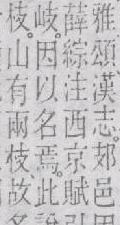 雅頌漢志。邑
薛綜注西京賦引
岐。因以名焉。此說
枝。山有兩枝故